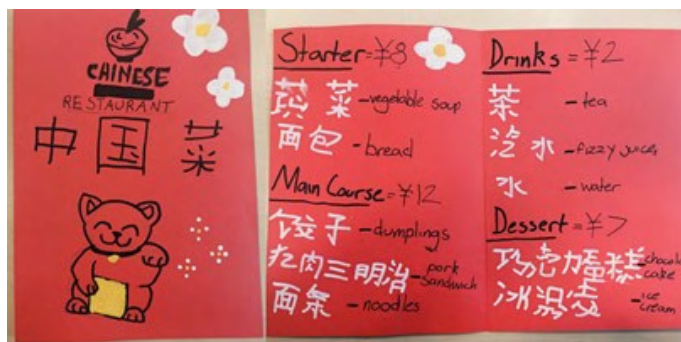 CHINESE
RESTAURANT
中国菜
Starter = ¥8
蔬菜 - vegetable soup
面包 - bread
Main Course = ¥12
饺子 - dumplings
犯肉三明治 - pork sandwich
面条 - noodles
Drinks = ¥2
茶 - tea
汽水 - fizzy juice
水 - water
Dessert = ¥7
巧克力蛋糕 - chocolate cake
冰淇凌 - ice cream